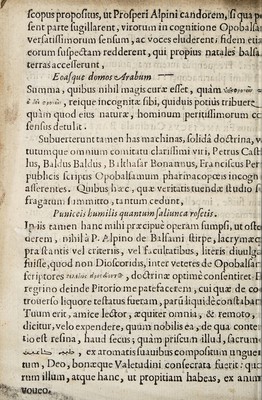 scopus propositus, ut Prosperi Alpini candorem, si qua p
sent parte suggillarent, virorum in cognitione Opobalsa
versatissimorum sensum, ac voces eluderent: fidem etia
eorum suspectam redderent, qui propius natales balsa
terras accesserunt,
Eoasque domos Arabum
Summa, quibus nihil magis curæ esset, quàm
reique incognitæ sibi, quid uis potiùs tribuere
quàm quod eius naturæ, hominum peritissimorum co
sensus detulit.
Subuerterunt tamen has machinas, solidâ doctrinâ, v
tutumque omnium comitatu clarissimi viri, Petrus Cast
lus, Baldus Baldus, Balthasar Bonannus, Franciscus Per
publicis scriptis Opobalsamum pharmacopœis incogn
asserentes. Quibus hæc, quæ veritatis tuendæ studio s
fragatum summitto, tantum cedunt,
Puniceis humilis quantum saliunca rosetis.
In iis tamen hanc mihi præcipuè operam sumpsi, ut ost
derem, nihil à P. Alpino de Balsami stirpe, lacrymæq
præstantis vel criteriis, vel facultatibus, literis diuulga
fuisse, quod non Dioscoridis, inter veteres de Opobalsa
scriptores doctrinæ optimè consentiret. E
regrino deinde Pitorio me patefacerem, cui quæ de co
trouerso liquore testatus fueram, parū liquidè constabāt
Tuum erit, amice lector, æquiter omnia, & remoto,
dicitur, velo expendere, quùm nobilis ea, de qua conte
tio est resina, haud secus; quàm priscum illud, sacrum
ex aromatis suauibus compositum unguen
tum, Deo, bonæque Valetudini consecrata fuerit: qu
rum illum, atque hanc, ut propitiam habeas, ex anim
voueo.